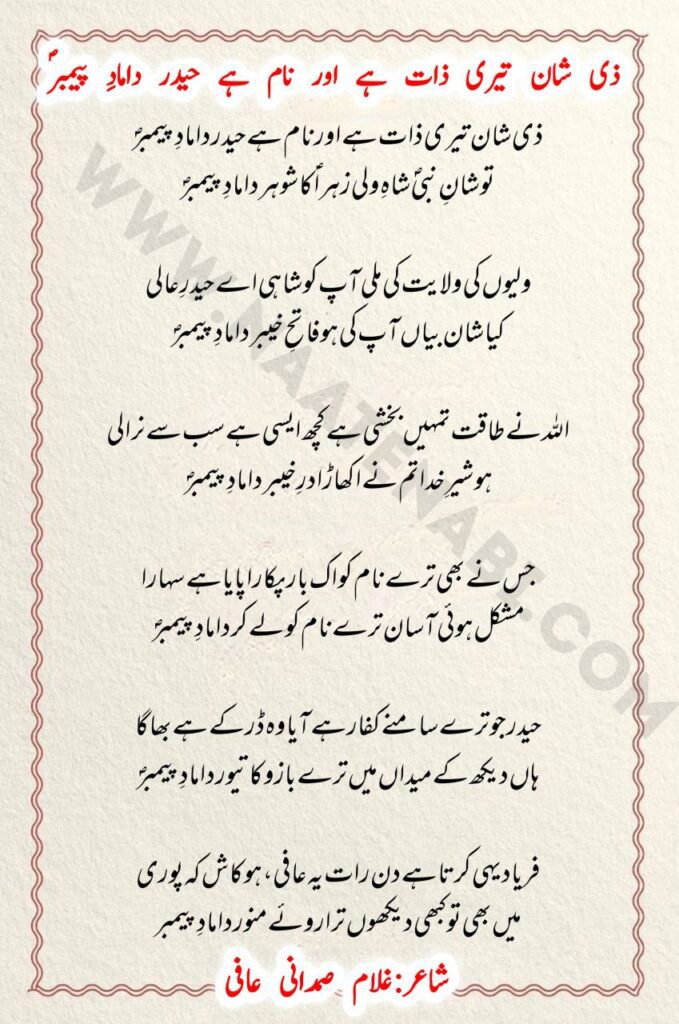 ذی شان تیری ذات ہے اور نام ہے حیدر دامادِ پیمبرؐ
ذی شان تیری ذات ہے اور نام ہے حیدر دامادِ پیمبرؐ
تو شانِ نبیؐ شاہِ ولی زہراؑ کا شوہر دامادِ پیمبرؐ
ولیوں کی ولایت کی ملی آپ کو شاہی اے حیدرِ عالی
کیا شان بیاں آپ کی ہو فاتحِ خیبر دامادِ پیمبرؐ
اللہ نے طاقت تمہیں بخشی ہے کچھ ایسی ہے سب سے نرالی
ہو شیرِ خدا تم نے اکھاڑا درِ خیبر دامادِ پیمبرؐ
جس نے بھی ترے نام کو اک بار پکارا پایا ہے سہارا
مشکل ہوئی آسان ترے نام کو لے کر دامادِ پیمبرؐ
حیدر جو ترے سامنے کفار ہے آیا وہ ڈر کے ہے بھاگا
ہاں دیکھ کے میداں میں ترے بازو کا تیور دامادِ پیمبرؐ
فریاد یہی کرتا ہے دن رات یہ عافی، ہو کاش کہ پوری
میں بھی تو کبھی دیکھوں ترا روئے منور دامادِ پیمبر
شاعر: غلام صمدانی عافی
WWW.NAATENABI.COM